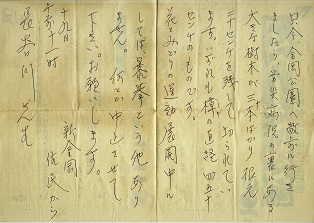 只今金岡公園へ散歩に行き
ましたら市営病院の裏にある
大きな樹木が三本ばかり根元
三十センチを残して切られてい
ます。いずれも樽の直経四五十
センチのものです。
花とみどりの運動展開中に
しては暴挙という他あり
ません。何とか中止させて
下さい。お願いします。
十九日
午前十一時
新金岡
住民から
長谷川先生